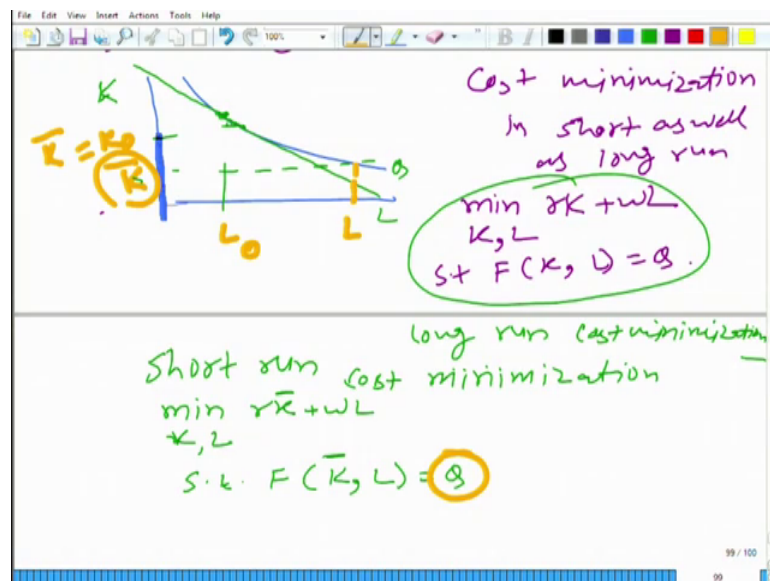 File Edit View Insert Actions Tools Help
100%
B I
K
Cost minimization
in short as well
as long run
K̅ = K0
K̅
Q
L
L0
L
min rK + wL
K, L
s.t F(K, L) = Q.
long run cost minimization
short run cost minimization
min rK̅ + wL
K, L
s.t. F(K̅, L) = Q
99 / 100
99